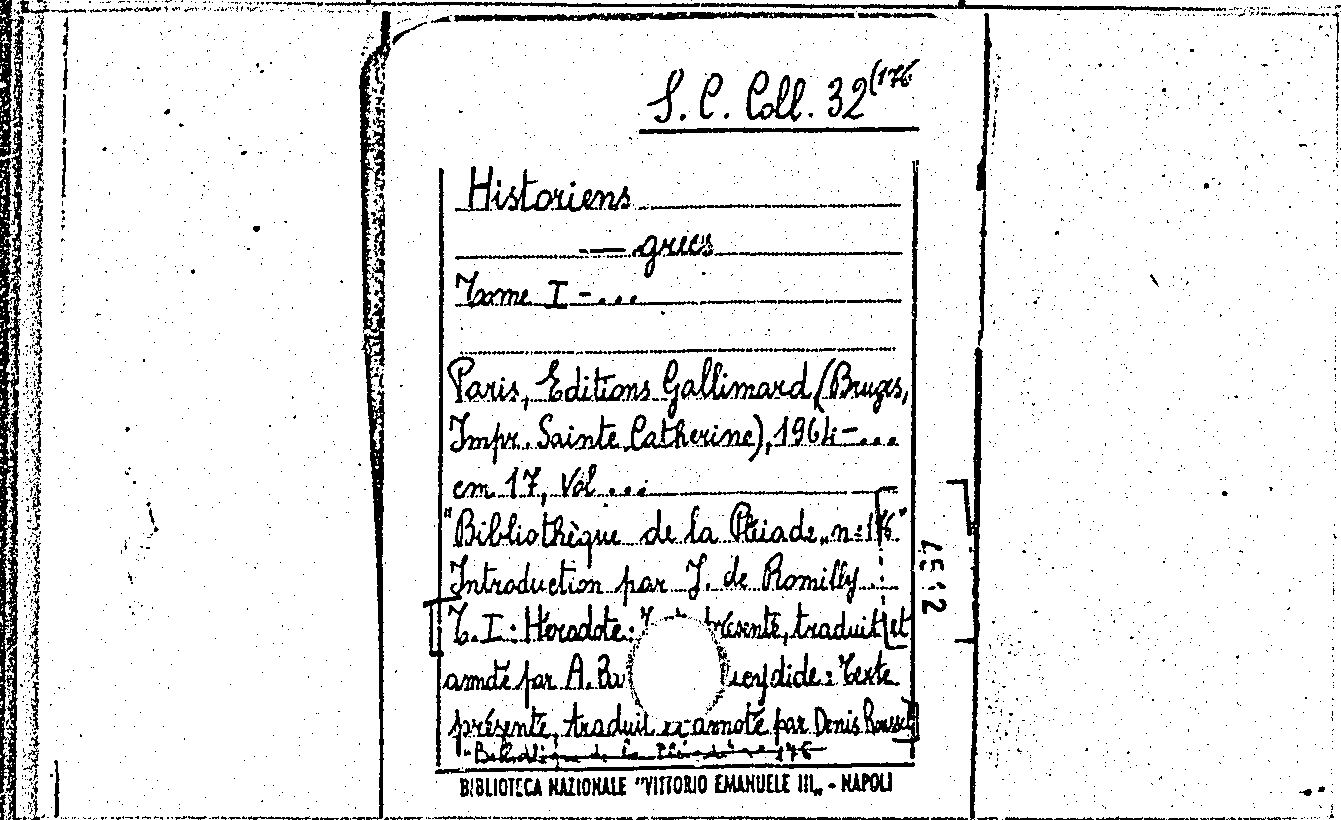 S. C. Coll. 32 (176
Historiens
— grecs
Tome I - ...
Paris, Editions Gallimard (Bruges,
Impr. Sainte Catherine), 1964 - ...
em 17, Vol ...
"Bibliothèque de la Pleiade„ n: 176"
Introduction par J. de Romilly
T. I: Hérodote: présenté, traduit et
annoté par A. Ba ucydide: Texte
présenté, traduit et annoté par Denis Roussel
"Bibliothèque de la Pleiade n° 176
BIBLIOTECA NAZIONALE "VITTORIO EMANUELE III„ - NAPOLI